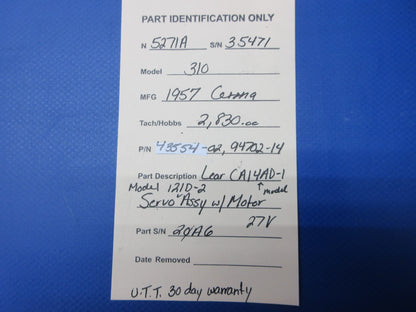 PART IDENTIFICATION ONLY
N 5271A S/N 35471
Model 310
MFG 1957 Cessna
Tach/Hobbs 2,830.00
P/N 43554-02, 94702-14
Part Description Lear CA14AD-1
Model 121D-2 ↑ model
Servo Assy w/ Motor
27V
Part S/N
Date Removed
U.T.T. 30 day warranty